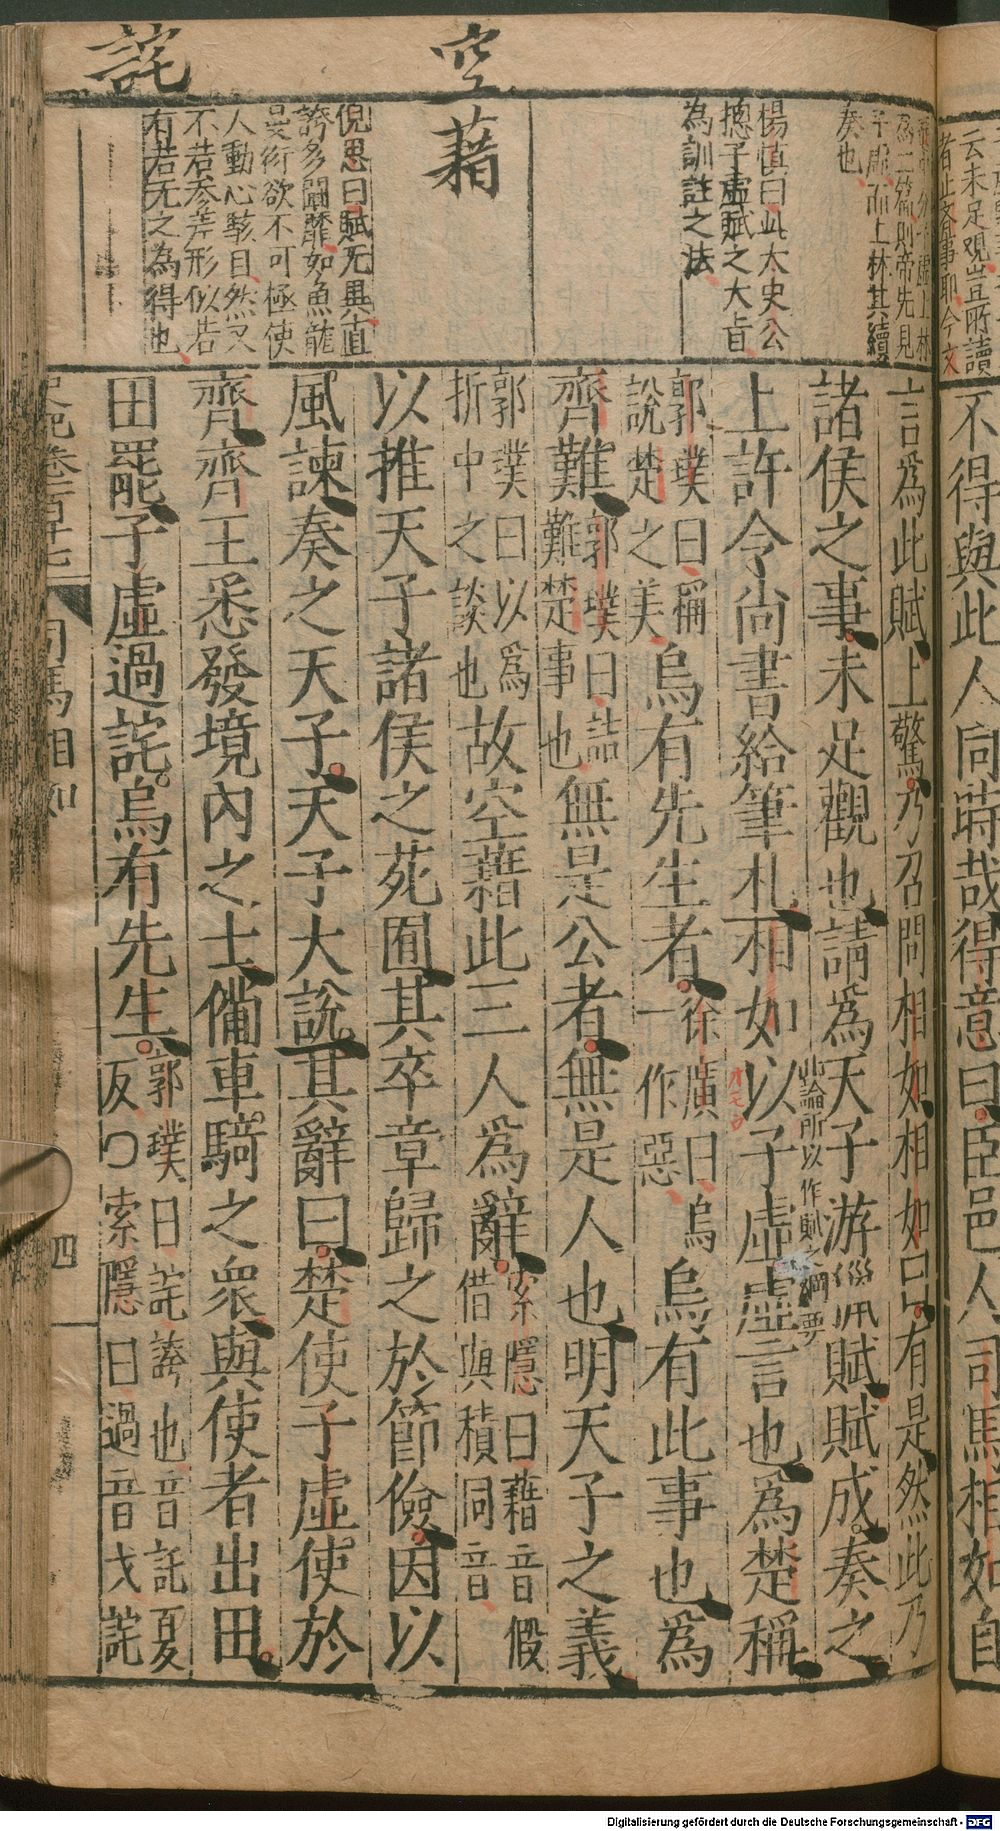 不得與此人同時哉得意曰臣邑人司馬相如自
言爲此賦上驚乃召問相如相如曰有是然此乃
諸侯之事未足觀也請爲天子游獵賦賦成奏之
此論所以作賦之綱要
上許令尚書給筆札相如以子虛虛言也爲楚稱
郭璞曰稱
說楚之美
烏有先生者
徐廣曰烏
一作惡
烏有此事也爲
齊難
郭璞曰詰
難楚事也
無是公者無是人也明天子之義
郭璞曰以爲
折中之談也
故空藉此三人爲辭
索隱曰藉音假
借與積同音
以推天子諸侯之苑囿其卒章歸之於節儉因以
風諫奏之天子天子大說其辭曰楚使子虛使於
齊齊王悉發境內之士備車騎之衆與使者出田
田罷子虛過詫烏有先生
郭璞曰詫誇也音託夏
反○索隱曰過音戈詫
史記卷百十七 司馬相如
四
云未足觀豈所讀
者止齊事耶今文
爲二篇則帝先見
子虛而上林其續
奏也
楊慎曰此太史公
摠子虛賦之大旨
為訓註之法
空藉
倪思曰賦无異直
誇多聞靡如魚龍
曼衍欲不可極使
人動心駭目然又
不若參差形似若
有若无之為得也
詫
Digitalisierung gefördert durch die Deutsche Forschungsgemeinschaft - DFG